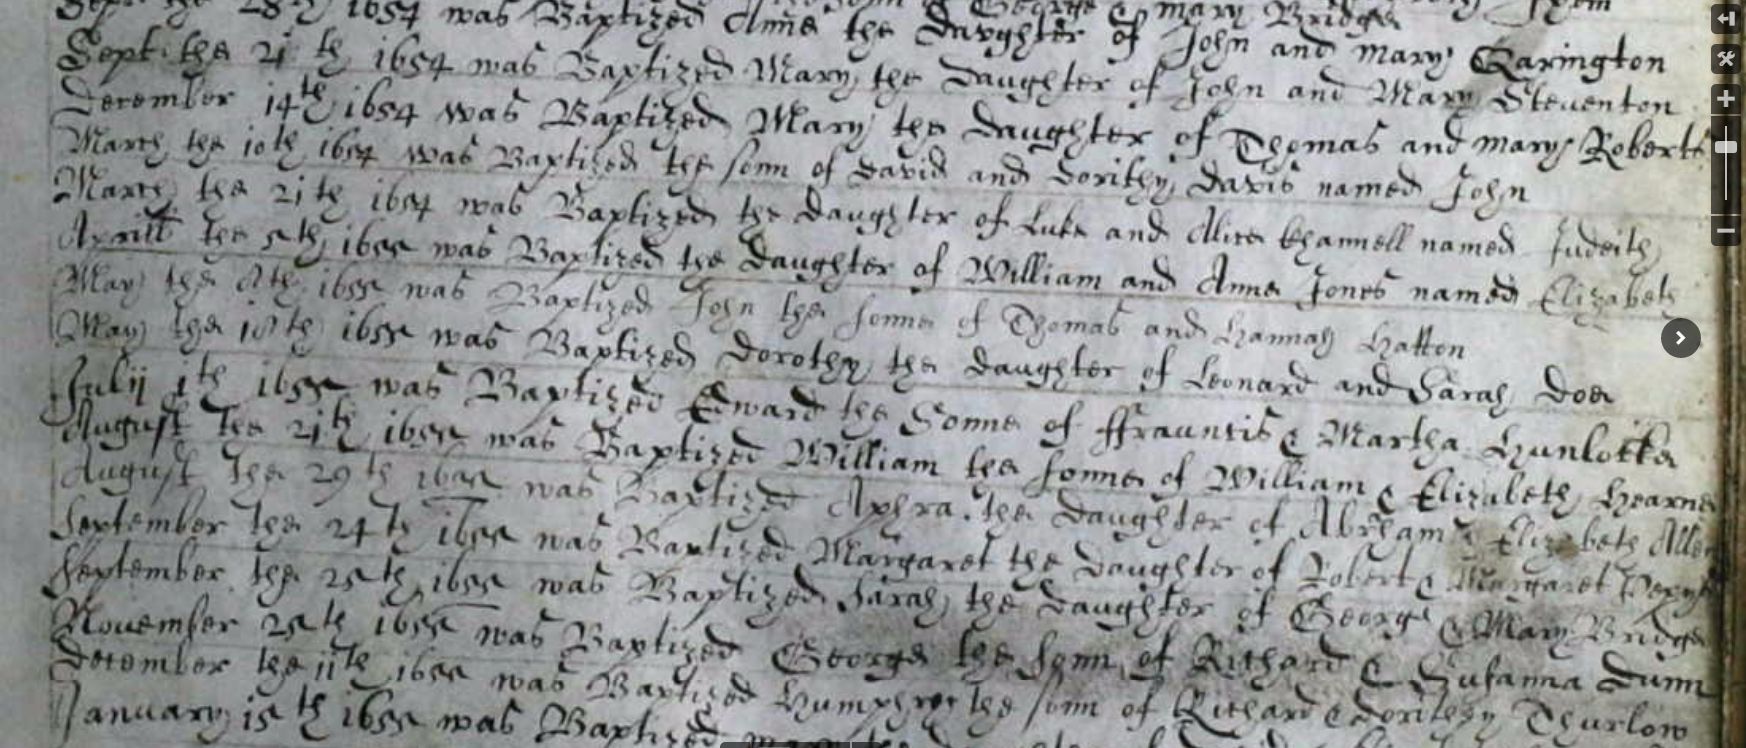 George & mary Bridges
Sept the 28th 1654 was Baptized Anne the Daughter of John and mary Carington
Sept: the 21th 1654 was Baptized Mary the Daughter of John and Mary Steventon
December 14th 1654 was Baptized Mary the daughter of Thomas and mary Roberts
March the 10th 1654 was Baptized the sonn of David and Dorithy Davis named John
March the 21th 1654 was Baptized the Daughter of Luke and Alice Channell named Judeith
Aprill the 5th 1655 was Baptized the Daughter of William and Anne Jones named Elizabeth
May the 8th 1655 was Baptized John the sonne of Thomas and Hannah Hatton
May the 10th 1655 was Baptized Dorothy the daughter of Leonard and Sarah Doe
Julij 1th 1655 was Baptized Edward the Sonne of ffrauncis & Martha Hunlocke
August the 21th 1655 was Baptized William the sonne of William & Elizabeth Hearne
August the 29th 1655 was Baptized Aphra the Daughter of Abrham & Elizabeth Allen
September the 24th 1655 was Baptized Margaret the Daughter of Robert & Margaret
September the 25th 1655 was Baptized Sarah the Daughter of George & Mary Bridges
November 25th 1655 was Baptized George the sonn of Richard & Susanna Dunn
December the 11th 1655 was Baptized Humphrey the sonn of Richard & Dorithy Thurlow
January 15th 1655 was Baptized mary the